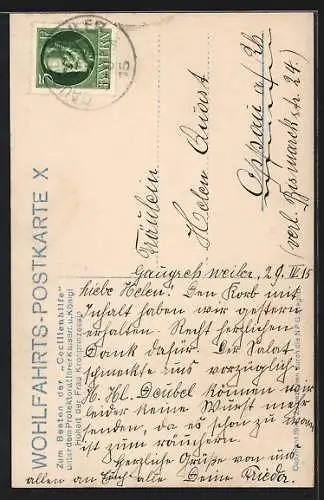 BAYERN
5
15
WOHLFAHRTS-POSTKARTE X
Zum Besten der „Cecilienhilfe"
unter dem Protektorat Ihrer Kaiserl. u. Königl.
Hoheit der Frau Kronprinzessin
Fräulein
Helen
Oppau a/Rh
(verl. Bismarckstr. 24.)
Gaugrehweiler, 29. 15
Liebe Helen! Den Korb mit
Inhalt haben wir gestern
erhalten. Recht herzlichen
Dank dafür. Der Salat
schmeckte uns vorzüglich.
H. Hl. Deubel können wir
leider keine Wurst mehr
senden, da es schon zu warm
ist zum räuchern.
Herzliche Grüße von uns
allen an Euch alle Deine Frieda.